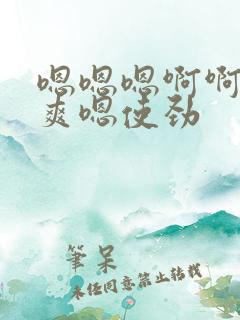 嗯嗯嗯啊啊
爽嗯使劲
筆呆
未经同意禁止转载